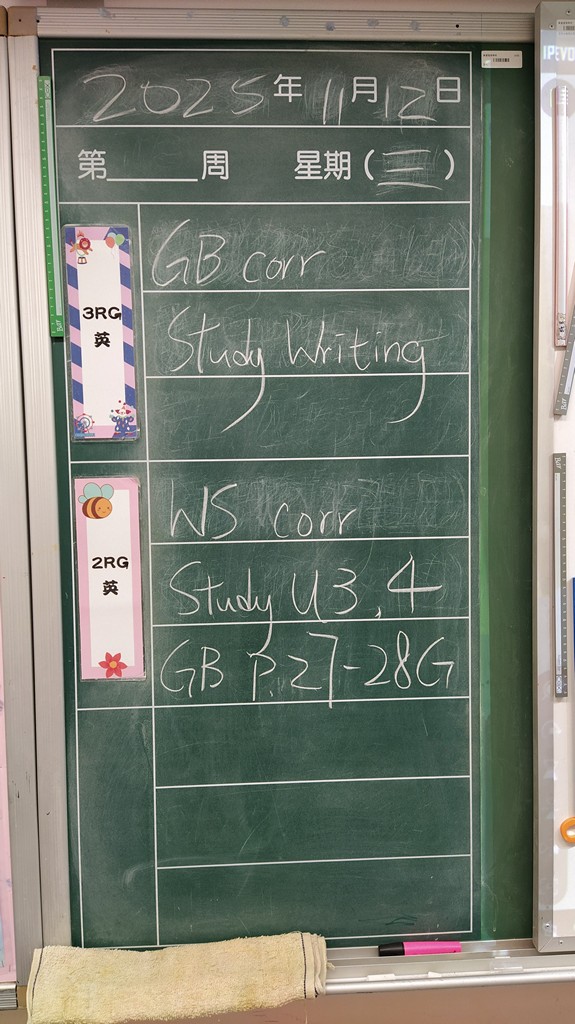 2025年11月12日
第______周 星期(三)
3RG
英
GB corr
Study Writing
2RG
英
WS corr
Study U3,4
GB P.27-28G